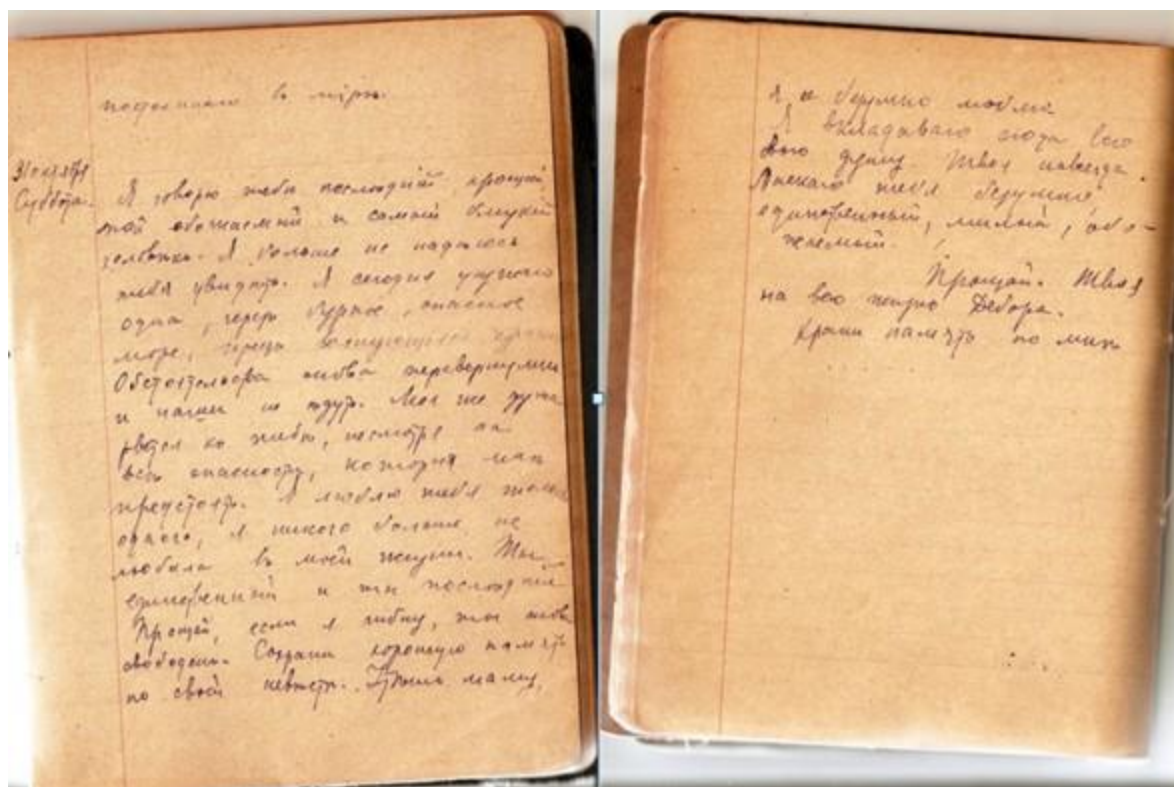 въ мірѣ.
31 октября
Суббота.
Я говорю тебѣ послѣдній прощай,
мой обожаемый и самый близкій
человѣкъ. Я больше не надѣюсь
тебя увидѣть. Я сегодня уѣзжаю
одна, черезъ бурное, опасное
море, черезъ
Обстоятельства снова перевернулись
и насъ не ждутъ. Моя же душа
рвется къ тебѣ, несмотря на
всю опасность, которая мнѣ
предстоитъ. Я люблю тебя только
одного, я никого больше не
любила въ моей жизни. Ты
единственный и ты послѣдній
Прощай, если я гибну, ты
свободенъ. Сохрани хорошую память
по своей невѣстѣ. маму,
я ее безумно люблю
Я вкладываю сюда всю
свою душу. Твоя навсегда.
тебя безумно,
единственный, милый, обо-
жаемый.
Прощай. Твоя
на всю жизнь Дебора.
Храни память по мнѣ